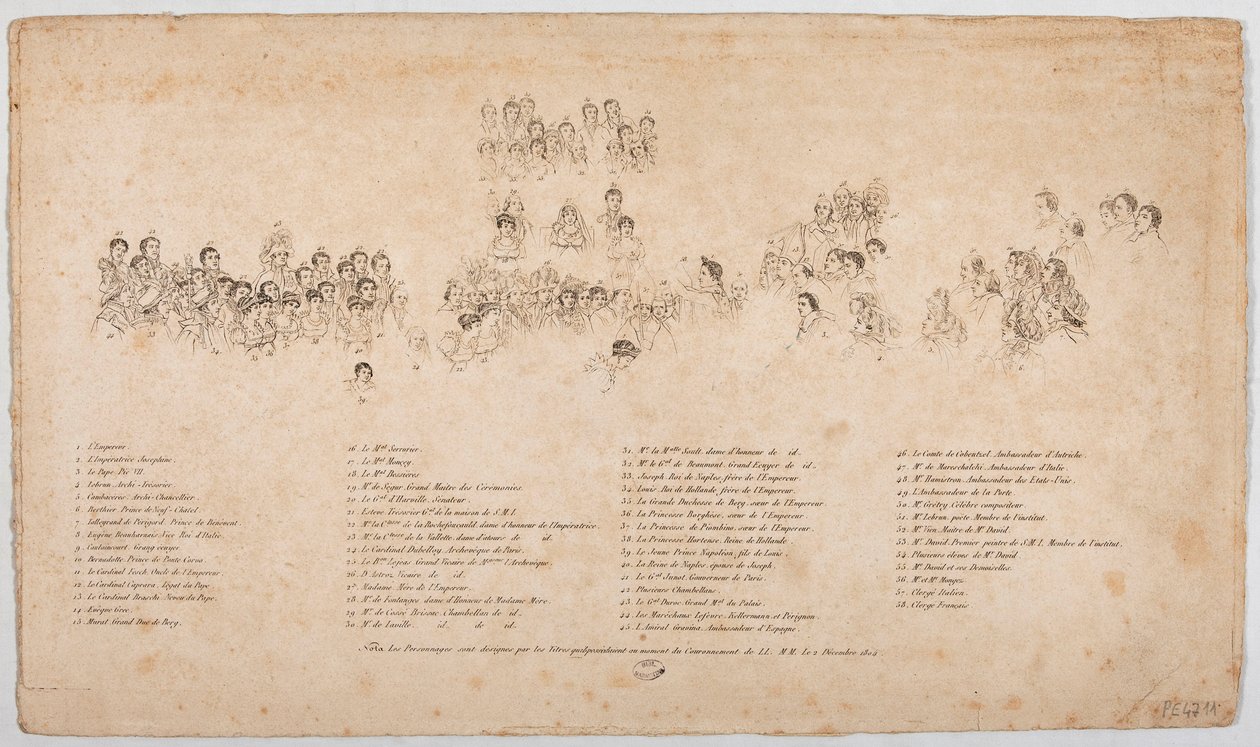 1. L'Empereur.
2. L'Impératrice Josephine.
3. Le Pape Pie VII.
4. Lebrun Archi-Trésorier.
5. Cambacères Archi-Chancellier.
6. Berthier Prince de Neuf-Chatel.
7. Tallegrand de Perigord. Prince de Bénévent.
8. Eugène Beauharnais Vice Roi d'Italie.
9. Caulaincourt. Grang écuyer
10. Bernadotte. Prince de Ponte Corvo.
11. Le Cardinal Fesch. Oncle de l'Empereur.
12. Le Cardinal Caprara, Légat du Pape.
13. Le Cardinal Braschi. Neveu du Pape.
14. Evêque Grec.
15. Murat Grand Duc de Berg.
16. Le Mal Serrurier.
17. Le Mal Monçey.
18. Le Mal Bessières
19. Mr de Ségur Grand Maitre des Cérémonies.
20. Le Gal d'Harville. Sénateur.
21. Esteve Trésorier Gal de la maison de S.M.I.
22. Me la Ctesse de la Rochefoucauld, dame d'honneur de l'Impératrice.
23. Me la Ctesse de la Vallette, dame d'atours de id.
24. Le Cardinal Dubelloy. Archevêque de Paris.
25. Le Bon Lejeas Grand Vicaire de l'Archevêque.
26. D'Astroz Vicaire de id.
27. Madame. Mère de l'Empereur.
28. Me de Fontanges dame d'Honneur de Madame Mère.
29. Mr de Cossé Brissac, Chambellan de id.
30. Mr de Laville. id. de id.
31. Me la Malle Soult, dame d'honneur de id.
32. Mr le Gal de Beaumont. Grand Ecuyer de id.
33. Joseph Roi de Naples, frère de l'Empereur.
34. Louis, Roi de Hollande, frère de l'Empereur.
35. La Grande Duchesse de Berg, sœur de l'Empereur.
36. La Princesse Borghèse, sœur de l'Empereur.
37. La Princesse de Piombino, sœur de l'Empereur.
38. La Princesse Hortense, Reine de Hollande.
39. Le Jeune Prince Napoléon, fils de Louis.
40. La Reine de Naples, épouse de Joseph.
41. Le Gal Junot, Gouverneur de Paris.
42. Plusieurs Chambellans.
43. Le Gal Duroc. Grand Mal du Palais.
44. Les Maréchaux Lefèvre, Kellermann, et Pérignon.
45. L'Amiral Gravina, Ambassadeur d'Espagne.
46. Le Comte de Cobentzel, Ambassadeur d'Autriche.
47. Mr de Mareschalchi, Ambassadeur d'Italie.
48. Mr Hamistron, Ambassadeur des Etats-Unis.
49. L'Ambassadeur de la Porte.
50. Mr Grétry, Célèbre compositeur.
51. Mr Lebrun, poëte, Membre de l'institut.
52. Mr Vien, Maitre de Mr David.
53. Mr David, Premier peintre de S.M.I. Membre de l'institut.
54. Plusieurs élèves de Mr David
55. Me David et ses Demoiselles.
56. Mr et Me Mongez
57. Clergé Italien.
58. Clergé Français
Nota Les Personnages sont désignés par les Titres qu'ils possédaient au moment du Couronnement de LL. MM. Le 2 Décembre 1804.
PE4711